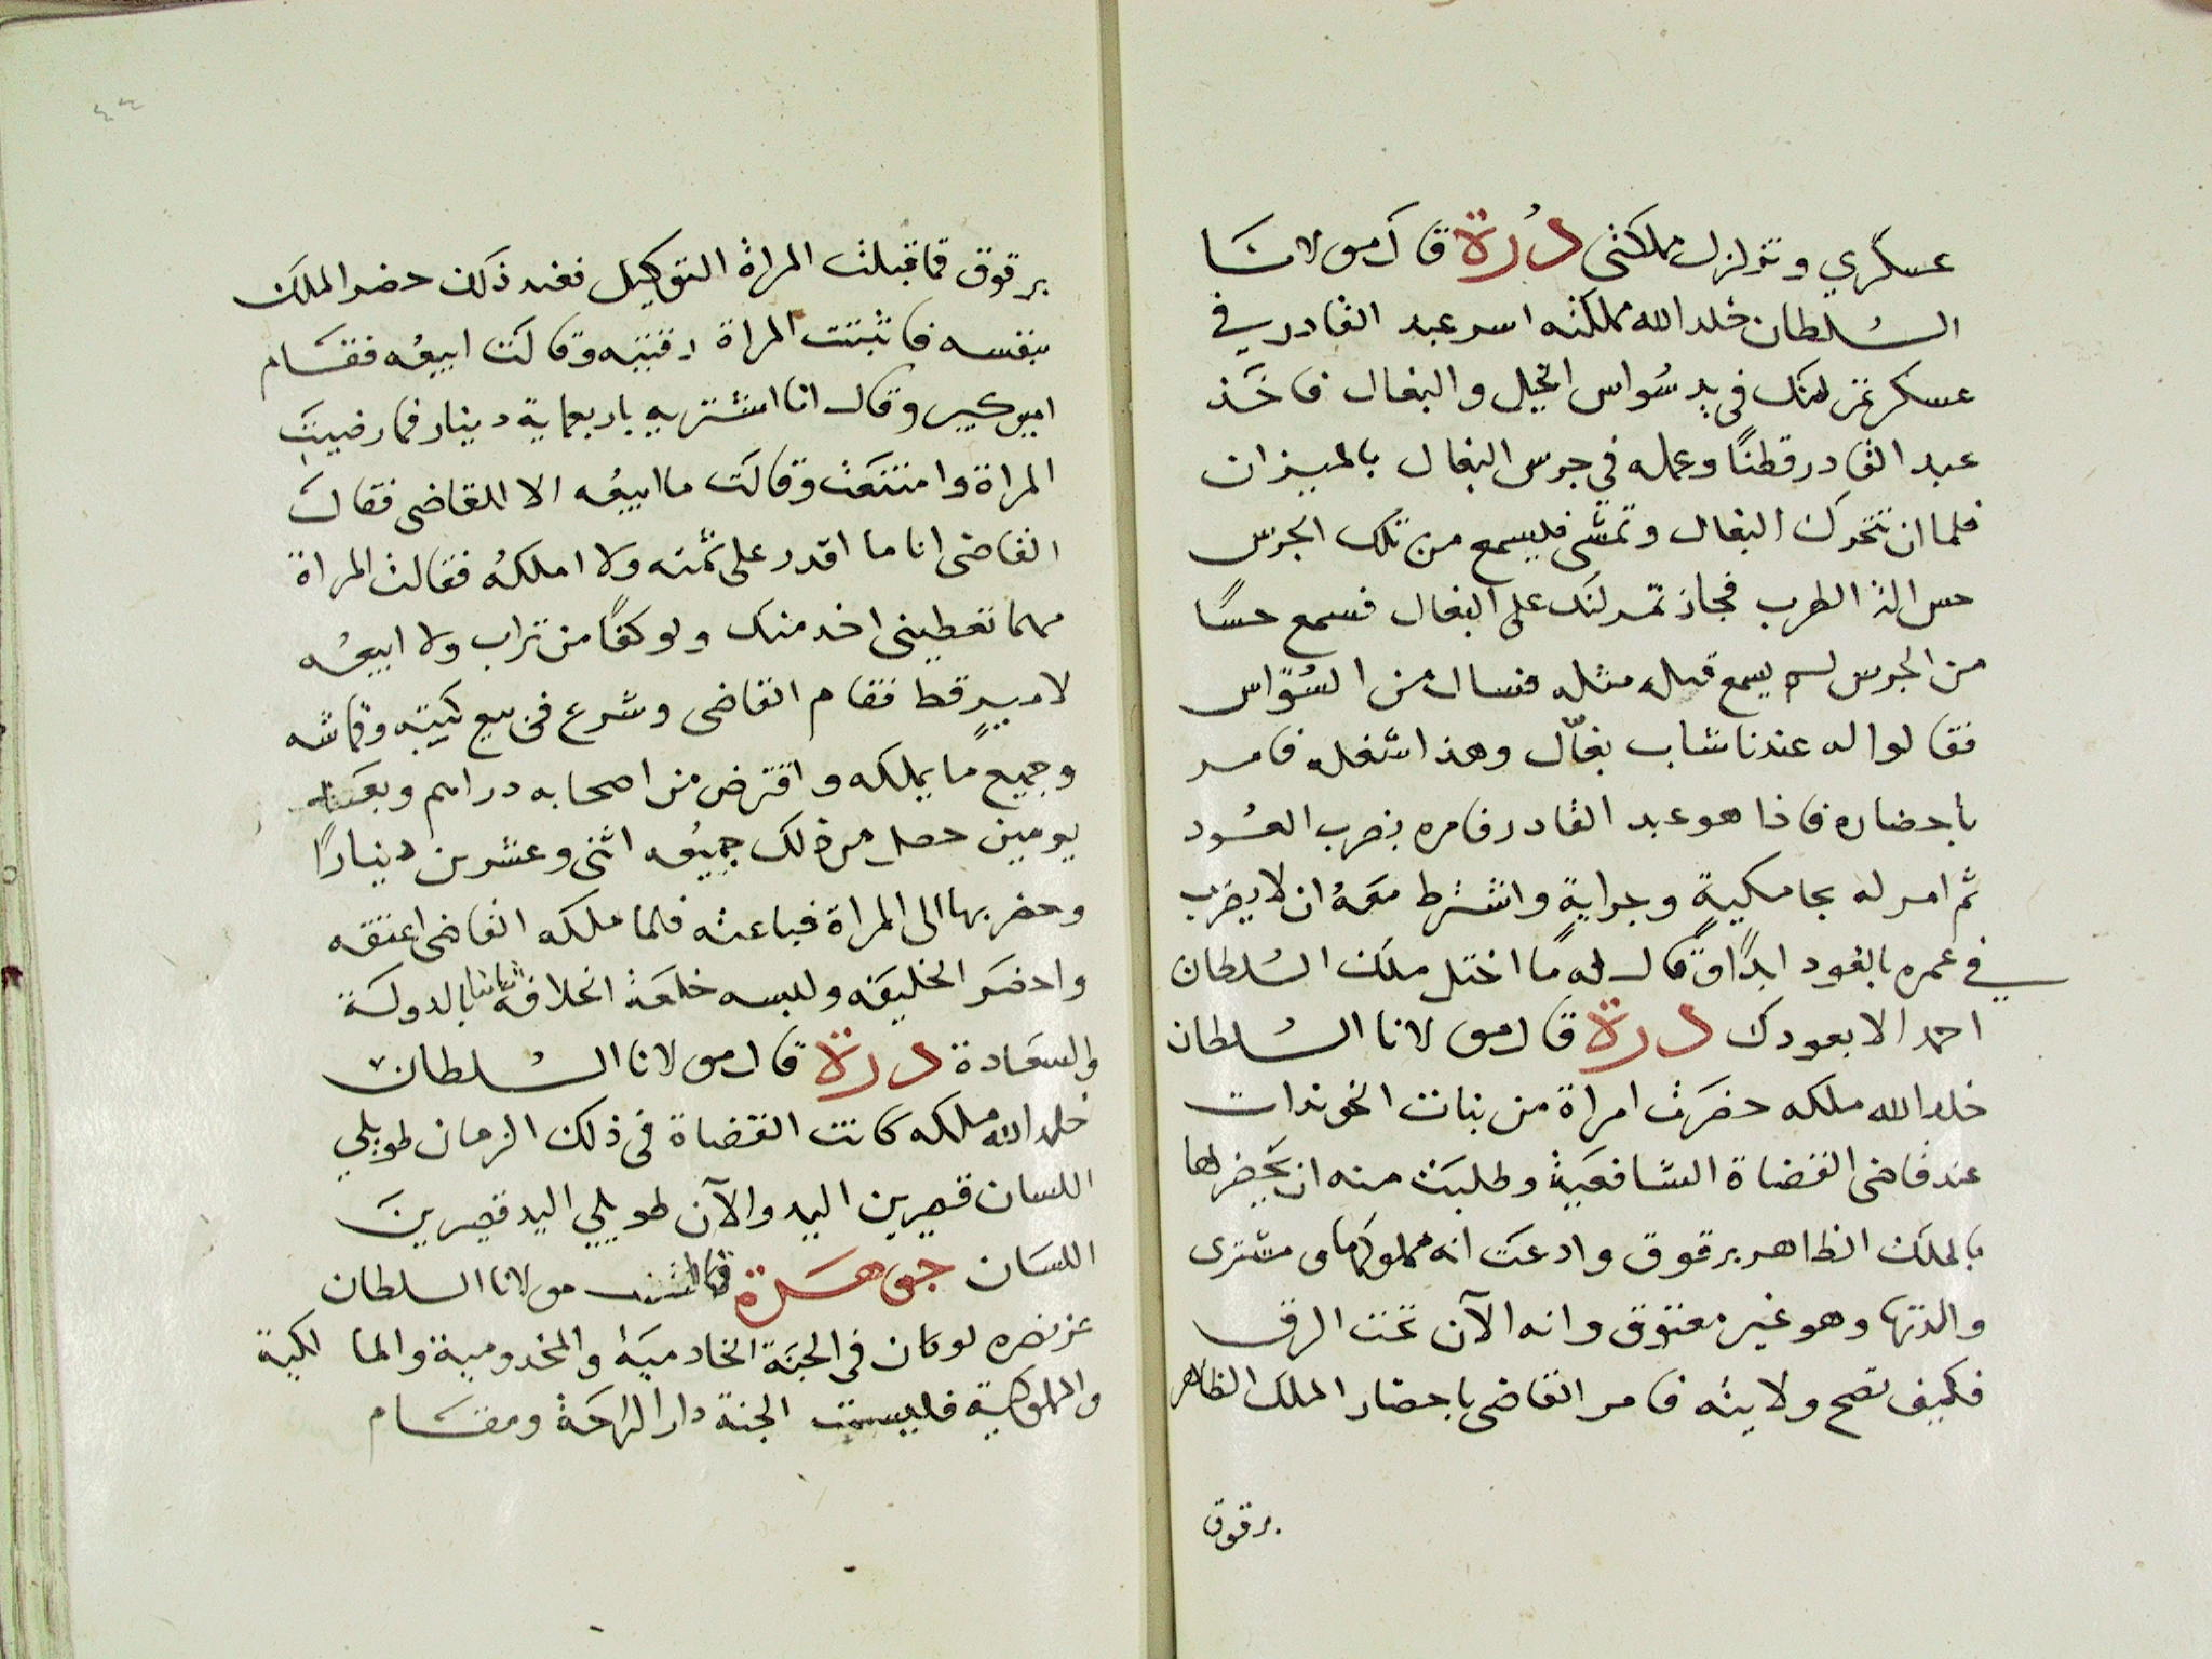 عسكري وتزلزل مملكتى دُرة قال مولانا
السُلطان خلد الله مملكته اسر عبد القادر في
عسكر تمرلنك فى يد سُواس الخيل والبغال فاخَذ
عبد القادر قطنًا وعمله في جرس البغال بالميزان
فلما ان تتحرك البغال وتمشّى فليسمع من تلك الجرس
حس الذ الطرب فجاز تمرلنك على البغال فسمع حسًا
من الجرس لم يسمع قبله مثله فسال من السُوّاس
فقالوا له عندنا شاب بغّال وهذا شغله فامر
باحضاره فاذا هو عبد القادر فامره بضرب العُود
ثم امر له بجامكيةٍ وجرايةٍ واشترط معَهُ ان لا يضرب
في عمره بالعود ابدًا وقال له مًا اختل ملك السُلطان
احمد الا بعودك درة قال مولانا السُلطان
خلد الله ملكه حضرَت امراة من بنات الخوندات
عند قاضى القضاة الشافعيَة وطلبَت منه ان يحَضر لها
بالملك الظاهر برقوق وادعَت انه مملوكها ومشترى
والدتها وهو غير معتوق وانه الآن تحت الرق
فكيف تصح ولايته فامر القاضى باحضار الملك الظاهر
برقوق
٤٤
برقوق فما قبلت المراة التوكيل فعند ذلك حضر الملك
بنفسه فاثبتت المراة رقيته وقالت ابيعُه فقام
امير كبير وقال انا اشتريه باربعماية دينار فما رضيت
المراة وامتنعَت وقالت ما ابيعُه الا للقاضى فقال
القاضى انا ما اقدر على ثمنه ولا املكهُ فقالت المراة
مهما تعطينى اخد منك ولو كفًا من تراب ولا ابيعُه
لاميرٍ قط فقام القاضى وشرع فى بيع كتبه وقماشه
وجميع ما يملكه واقترض من اصحابه دراهم وبعَد
يومين حصل من ذلك جميعُه اثنى وعشرين دينارًا
وحضر بها الى المراة فباعته فلما ملكه القاضى اعتقه
واحضر الخليفه ولبسه خلعَة الخلافة ثانيا بالدولة
والسعَادة درة قال مولانا السُلطان
خلد الله ملكه كانت القضاة فى ذلك الزمان طويلي
اللسان قصيرين اليد والآن طويلي اليد قصيرين
اللسَان جوهرَة مولانا السلطان
عز نصره لو كان فى الجنَة الخادميَة والمخدومية والمالكية
والمملوكية فليست الجنة دار الراحَة ومقام